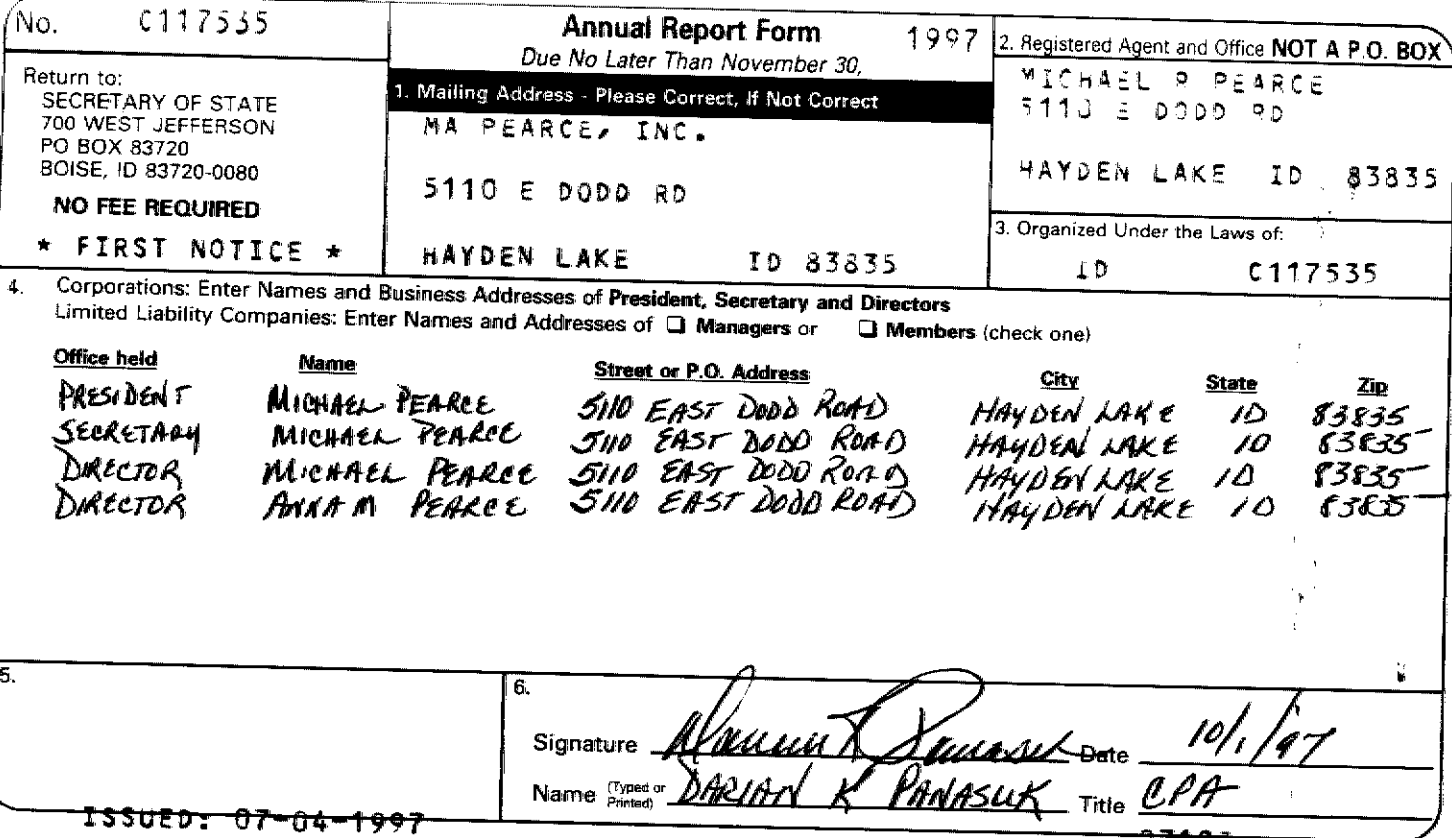 No. C117535
Annual Report Form 1997
Due No Later Than November 30,
Return to:
SECRETARY OF STATE
700 WEST JEFFERSON
PO BOX 83720
BOISE, ID 83720-0080
NO FEE REQUIRED
* FIRST NOTICE *
1. Mailing Address - Please Correct, If Not Correct
MA PEARCE, INC.
5110 E DODD RD
HAYDEN LAKE ID 83835
2. Registered Agent and Office NOT A P.O. BOX
MICHAEL R PEARCE
5110 E DODD RD
HAYDEN LAKE ID 83835
3. Organized Under the Laws of:
ID C117535
4. Corporations: Enter Names and Business Addresses of President, Secretary and Directors
Limited Liability Companies: Enter Names and Addresses of ❑ Managers or ❑ Members (check one)
Office held Name Street or P.O. Address City State Zip
PRESIDENT MICHAEL PEARCE 5110 EAST DODD ROAD HAYDEN LAKE ID 83835
SECRETARY MICHAEL PEARCE 5110 EAST DODD ROAD HAYDEN LAKE ID 83835
DIRECTOR MICHAEL PEARCE 5110 EAST DODD ROAD HAYDEN LAKE ID 83835
DIRECTOR ANNA M PEARCE 5110 EAST DODD ROAD HAYDEN LAKE ID 83835
5.
6.
Signature Darian K Panasuk Date 10/1/97
Name (Typed or Printed) DARIAN K PANASUK Title CPA
ISSUED: 07-04-1997